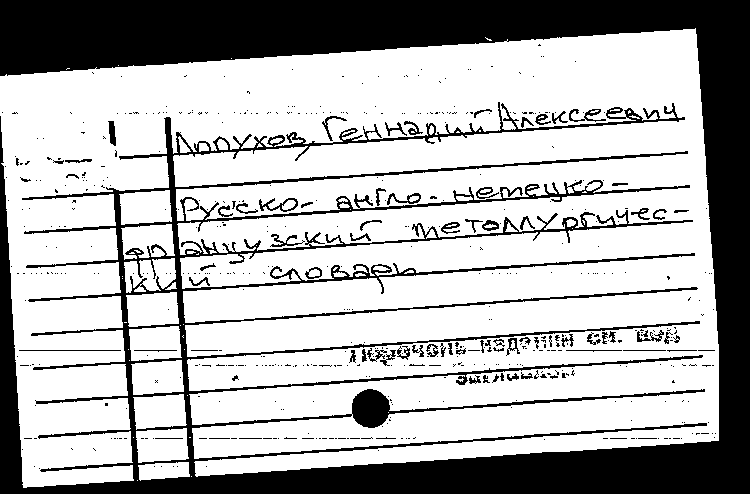 Лопухов, Геннадий Алексеевич
Русско-англо-немецко-
французский металлургичес-
кий словарь
Перечень изданий см. под
заглавием